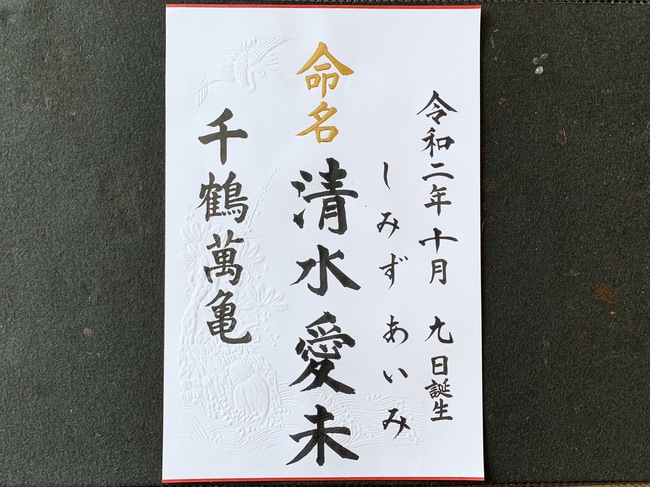 令和二年十月九日誕生
しみずあいみ
命名
清水愛未
千鶴萬亀